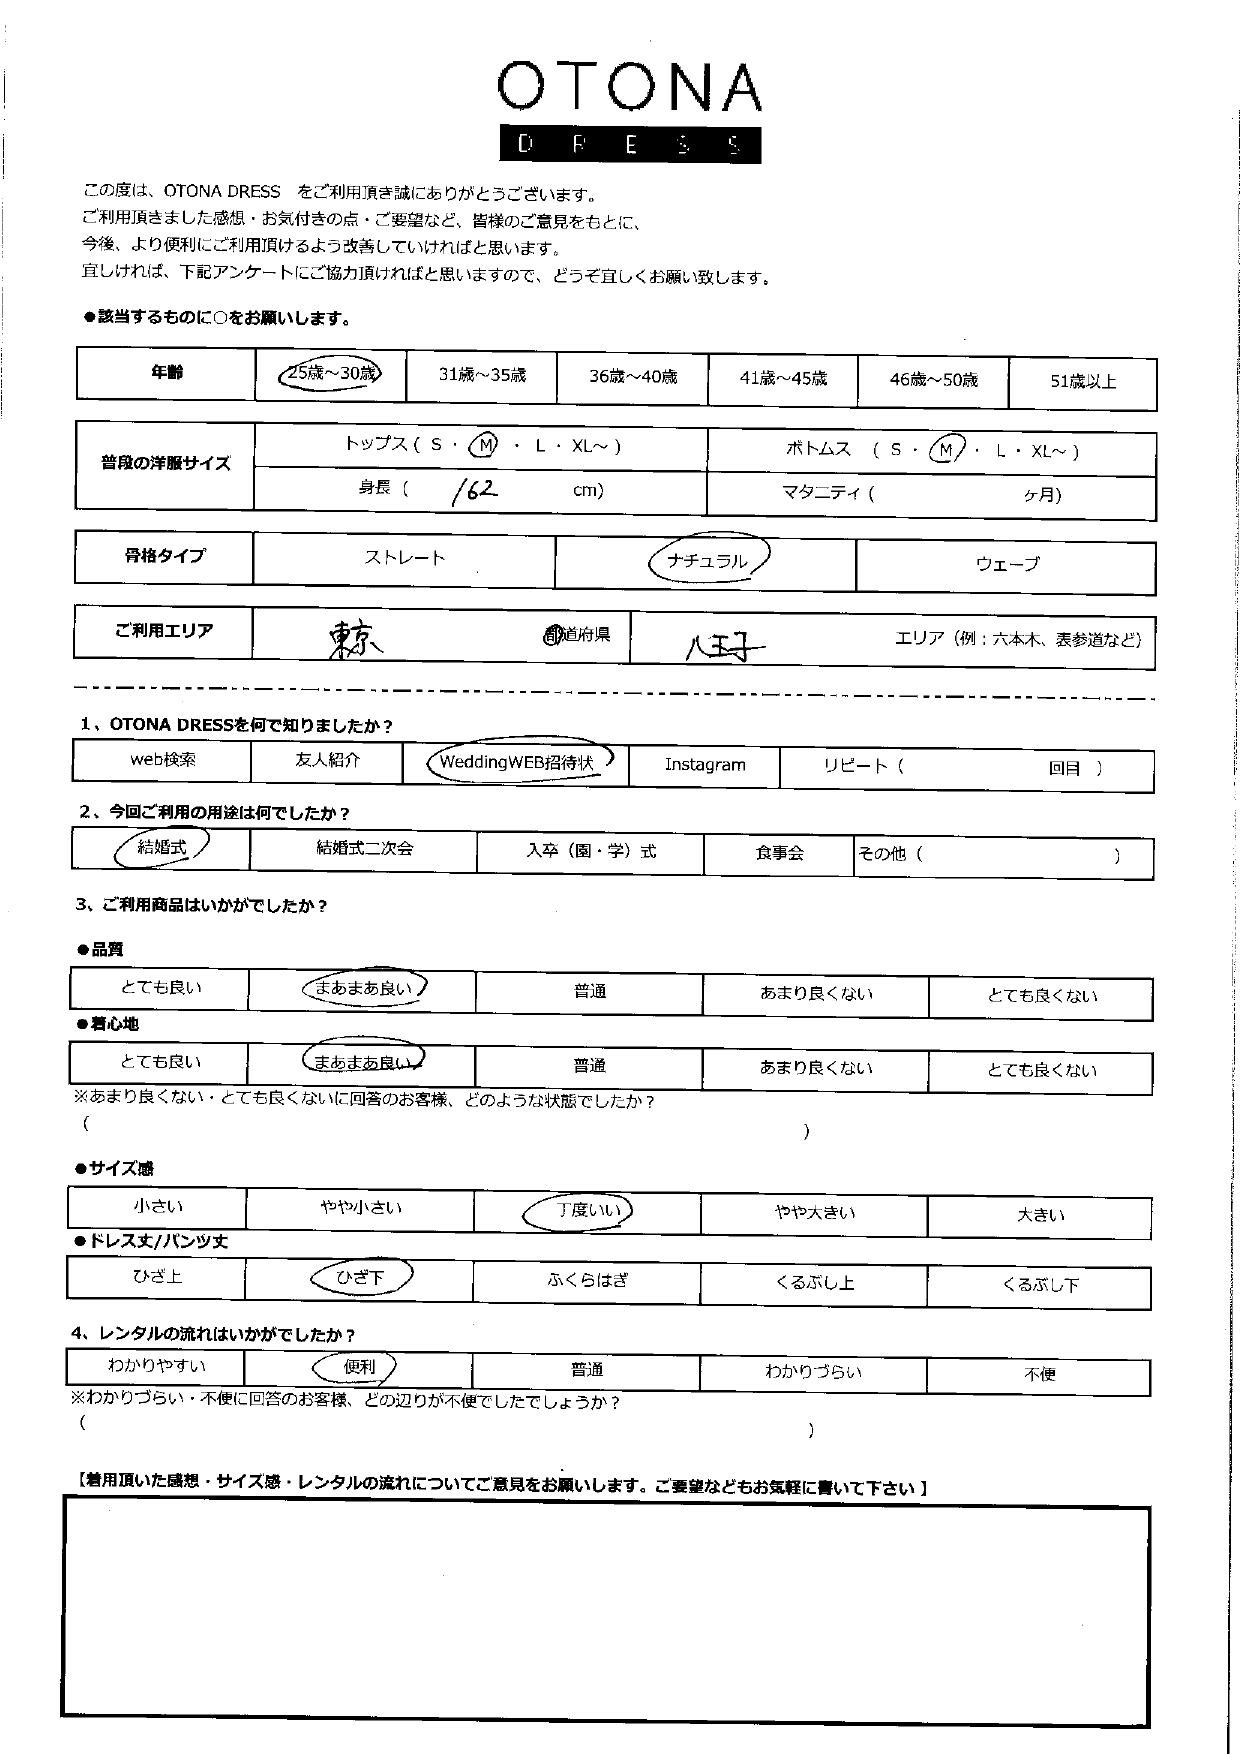 OTONA
DRESS
この度は、OTONA DRESS　をご利用頂き誠にありがとうございます。
ご利用頂きました感想・お気付きの点・ご要望など、皆様のご意見をもとに、
今後、より便利にご利用頂けるよう改善していければと思います。
宜しければ、下記アンケートにご協力頂ければと思いますので、どうぞ宜しくお願い致します。
●該当するものに○をお願いします。
年齢 25歳～30歳 31歳～35歳 36歳～40歳 41歳～45歳 46歳～50歳 51歳以上
普段の洋服サイズ トップス ( S ・ M ・ L ・ XL～ ) ボトムス ( S ・ M ・ L ・ XL～ )
身長 ( 162 cm) マタニティ ( ヶ月)
骨格タイプ ストレート ナチュラル ウェーブ
ご利用エリア 東京 都道府県 八王子 エリア（例：六本木、表参道など）
1、OTONA DRESSを何で知りましたか？
web検索 友人紹介 WeddingWEB招待状 Instagram リピート（ 回目 ）
2、今回ご利用の用途は何でしたか？
結婚式 結婚式二次会 入卒（園・学）式 食事会 その他（ ）
3、ご利用商品はいかがでしたか？
●品質
とても良い まあまあ良い 普通 あまり良くない とても良くない
●着心地
とても良い まあまあ良い 普通 あまり良くない とても良くない
※あまり良くない・とても良くないに回答のお客様、どのような状態でしたか？
( )
●サイズ感
小さい やや小さい 丁度いい やや大きい 大きい
●ドレス丈/パンツ丈
ひざ上 ひざ下 ふくらはぎ くるぶし上 くるぶし下
4、レンタルの流れはいかがでしたか？
わかりやすい 便利 普通 わかりづらい 不便
※わかりづらい・不便に回答のお客様、どの辺りが不便でしたでしょうか？
( )
【着用頂いた感想・サイズ感・レンタルの流れについてご意見をお願いします。ご要望などもお気軽に書いて下さい】